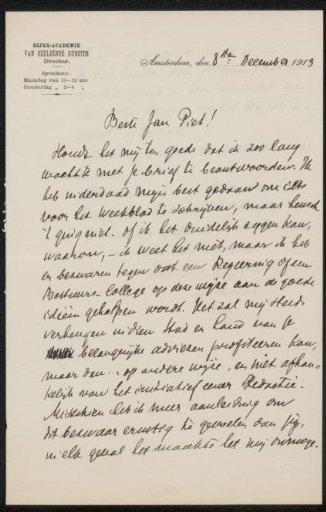 RIJKS-ACADEMIE
VAN BEELDENDE KUNSTEN
Directeur.
Spreekuur:
Maandag van 10-12 uur
Donderdag " 2-4 "
Amsterdam, den 8sten December 1913
Beste Jan Piet!
Houdt het mij ten goede dat ik zoo lang
wachtte met je brief te beantwoorden. Ik
heb inderdaad mijn best gedaan om iets
voor het Weekblad te schrijven, maar heusch
't ging niet. Of ik het duidelijk zeggen kan,
waarom, - ik weet het niet, maar ik heb
er bezwaren tegen dat een Regeering of een
Bestuurs College op deze wijze aan de goede
ideën geholpen wordt. Het zal mij steeds
verheugen indien Stad en Land van je
belangrijke adviezen profiteeren kan,
maar dan .. op andere wijze, en niet afhan-
kelijk van het initiatief eener Redactie.
Misschien heb ik meer aanleiding om
dit bezwaar ernstig te gevoelen dan jij,
in elk geval het maakte het mij onmoge-